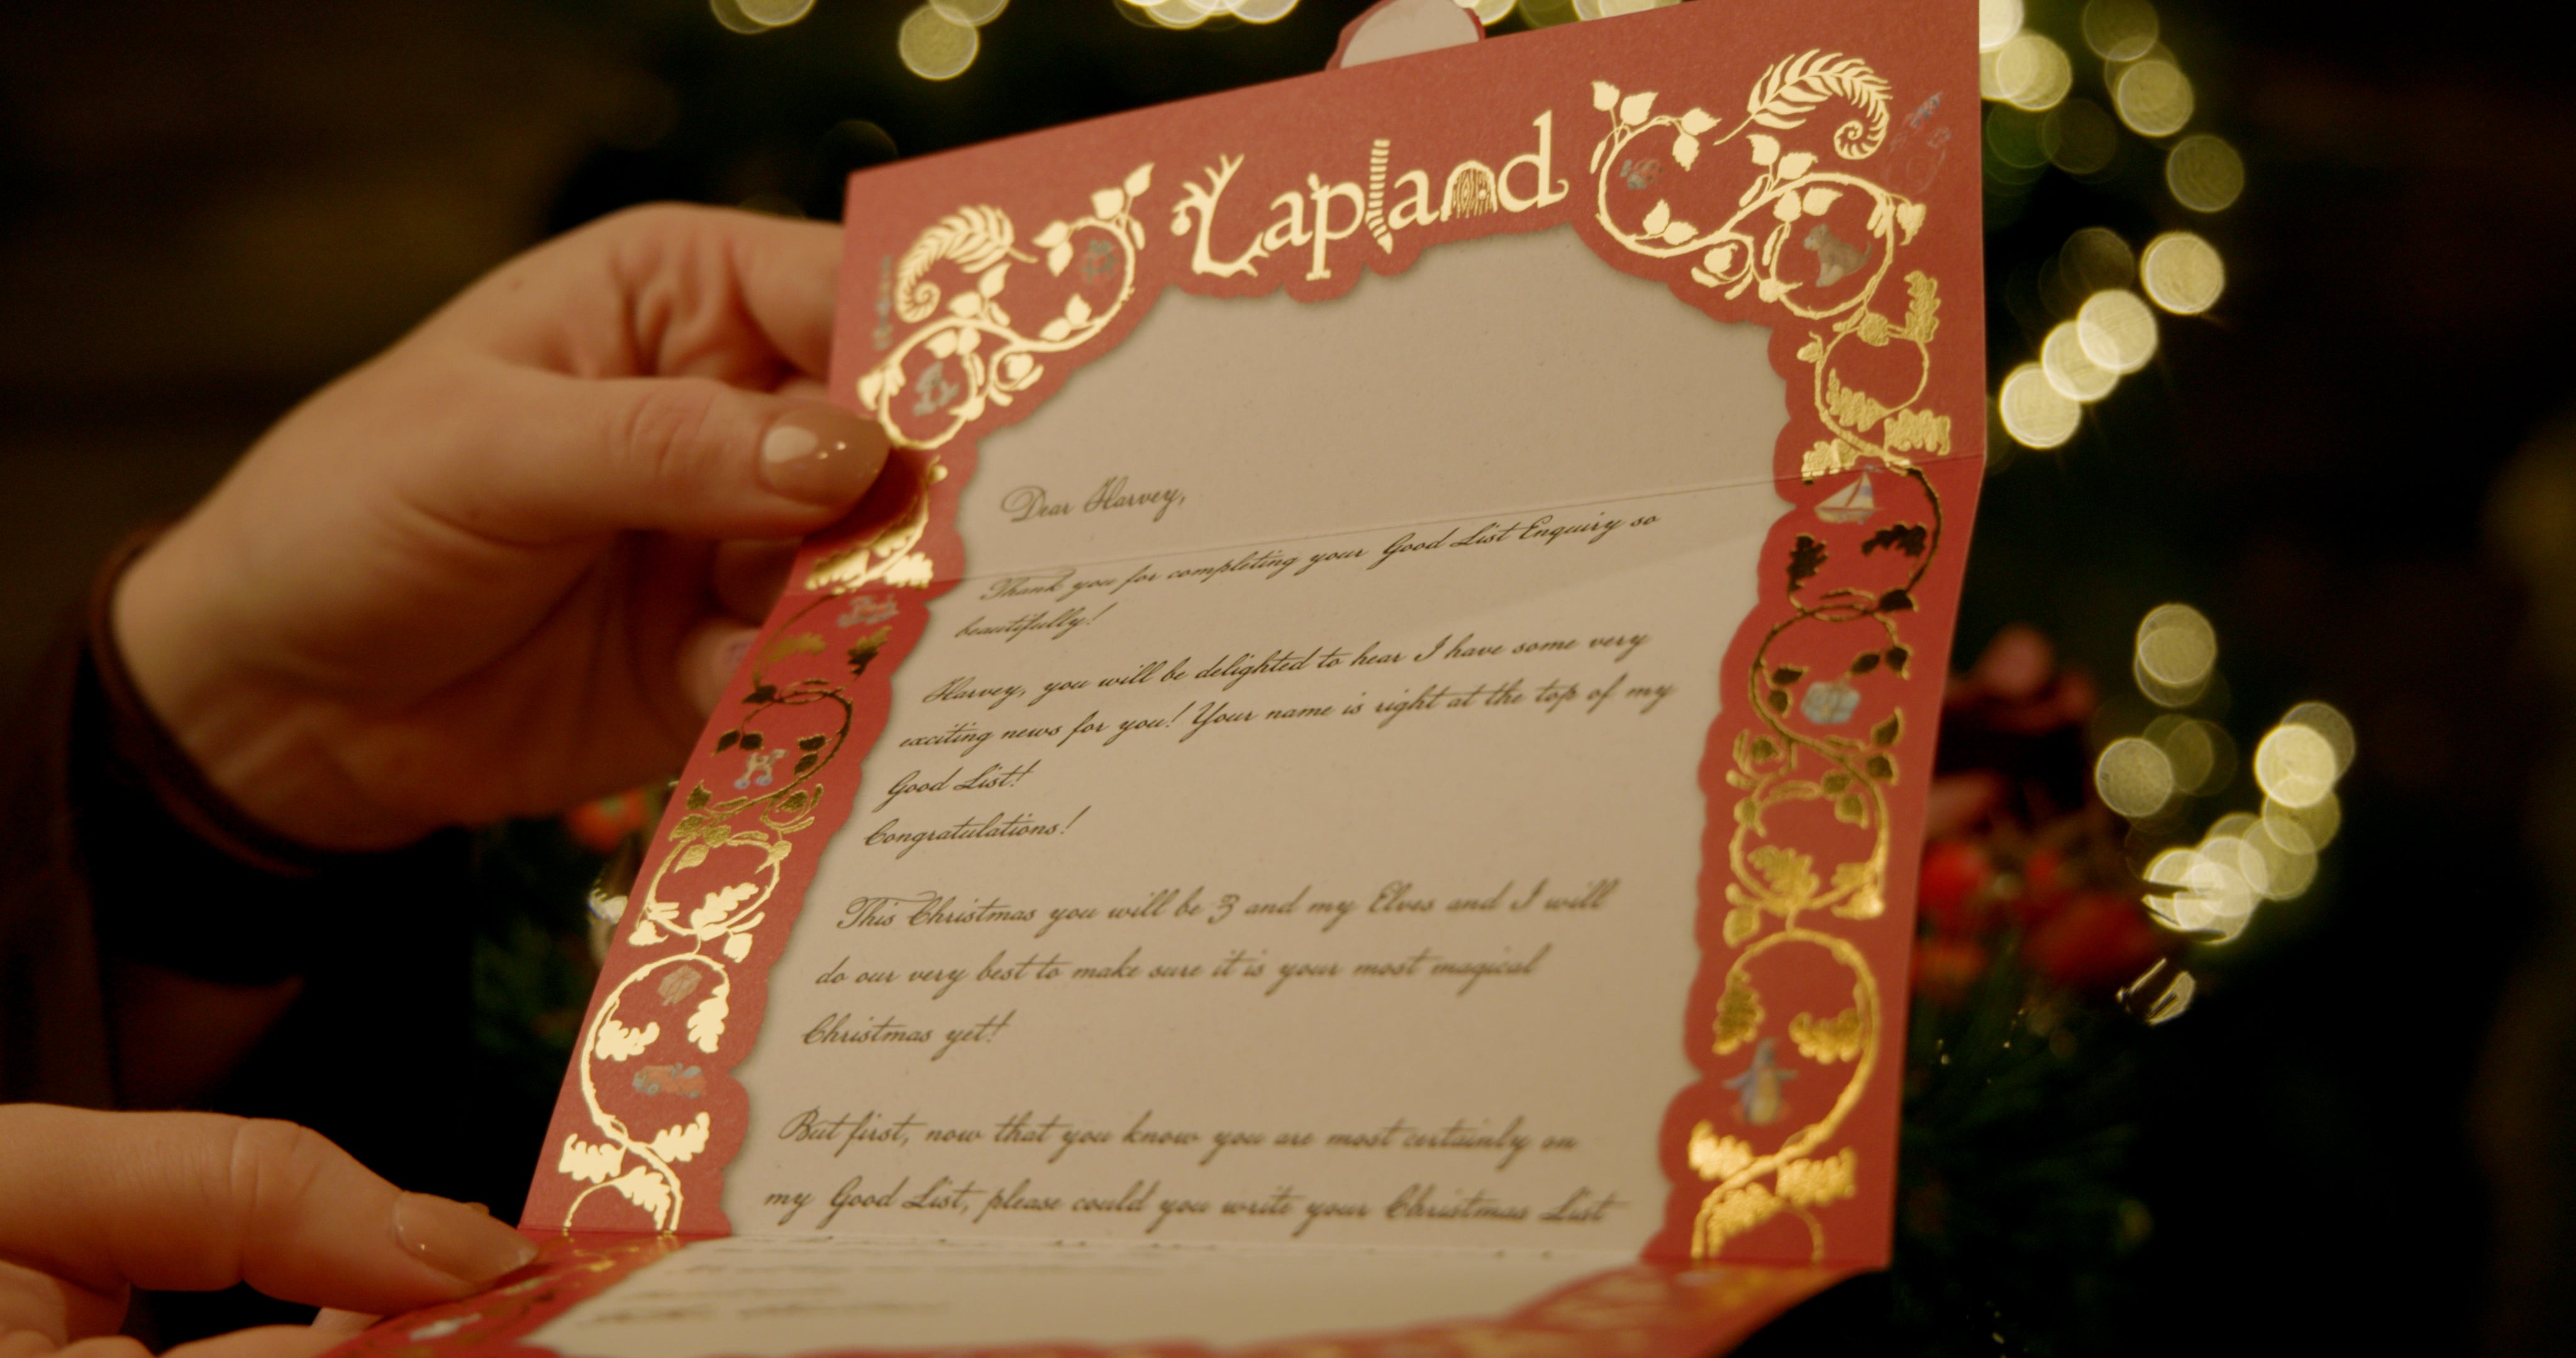 Lapland
Dear Harvey,
Thank you for completing your Good List Enquiry so
beautifully!
Harvey, you will be delighted to hear I have some very
exciting news for you! Your name is right at the top of my
Good List!
Congratulations!
This Christmas you will be 3 and my Elves and I will
do our very best to make sure it is your most magical
Christmas yet!
But first, now that you know you are most certainly on
my Good List, please could you write your Christmas List